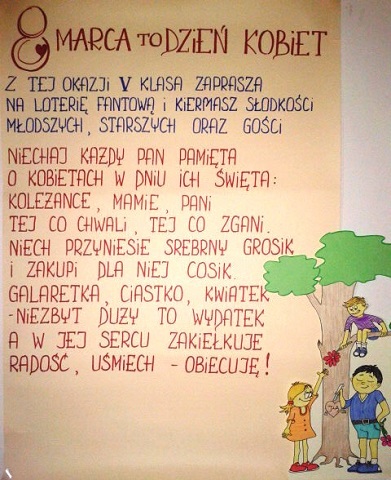 8 MARCA TO DZIEŃ KOBIET
Z TEJ OKAZJI V KLASA ZAPRASZA
NA LOTERIĘ FANTOWĄ i KIERMASZ SŁODKOŚCI
MŁODSZYCH, STARSZYCH ORAZ GOŚCI
NIECHAJ KAŻDY PAN PAMIĘTA
O KOBIETACH W DNIU ICH ŚWIĘTA:
KOLEŻANCE, MAMIE, PANI
TEJ CO CHWALI, TEJ CO ZGANI.
NIECH PRZYNIESIE SREBRNY GROSIK
i ZAKUPI DLA NIEJ COSIK.
GALARETKA, CIASTKO, KWIATEK
-NIEZBYT DUŻY TO WYDATEK
A W JEJ SERCU ZAKIEŁKUJE
RADOŚĆ, UŚMIECH - OBIECUJĘ!